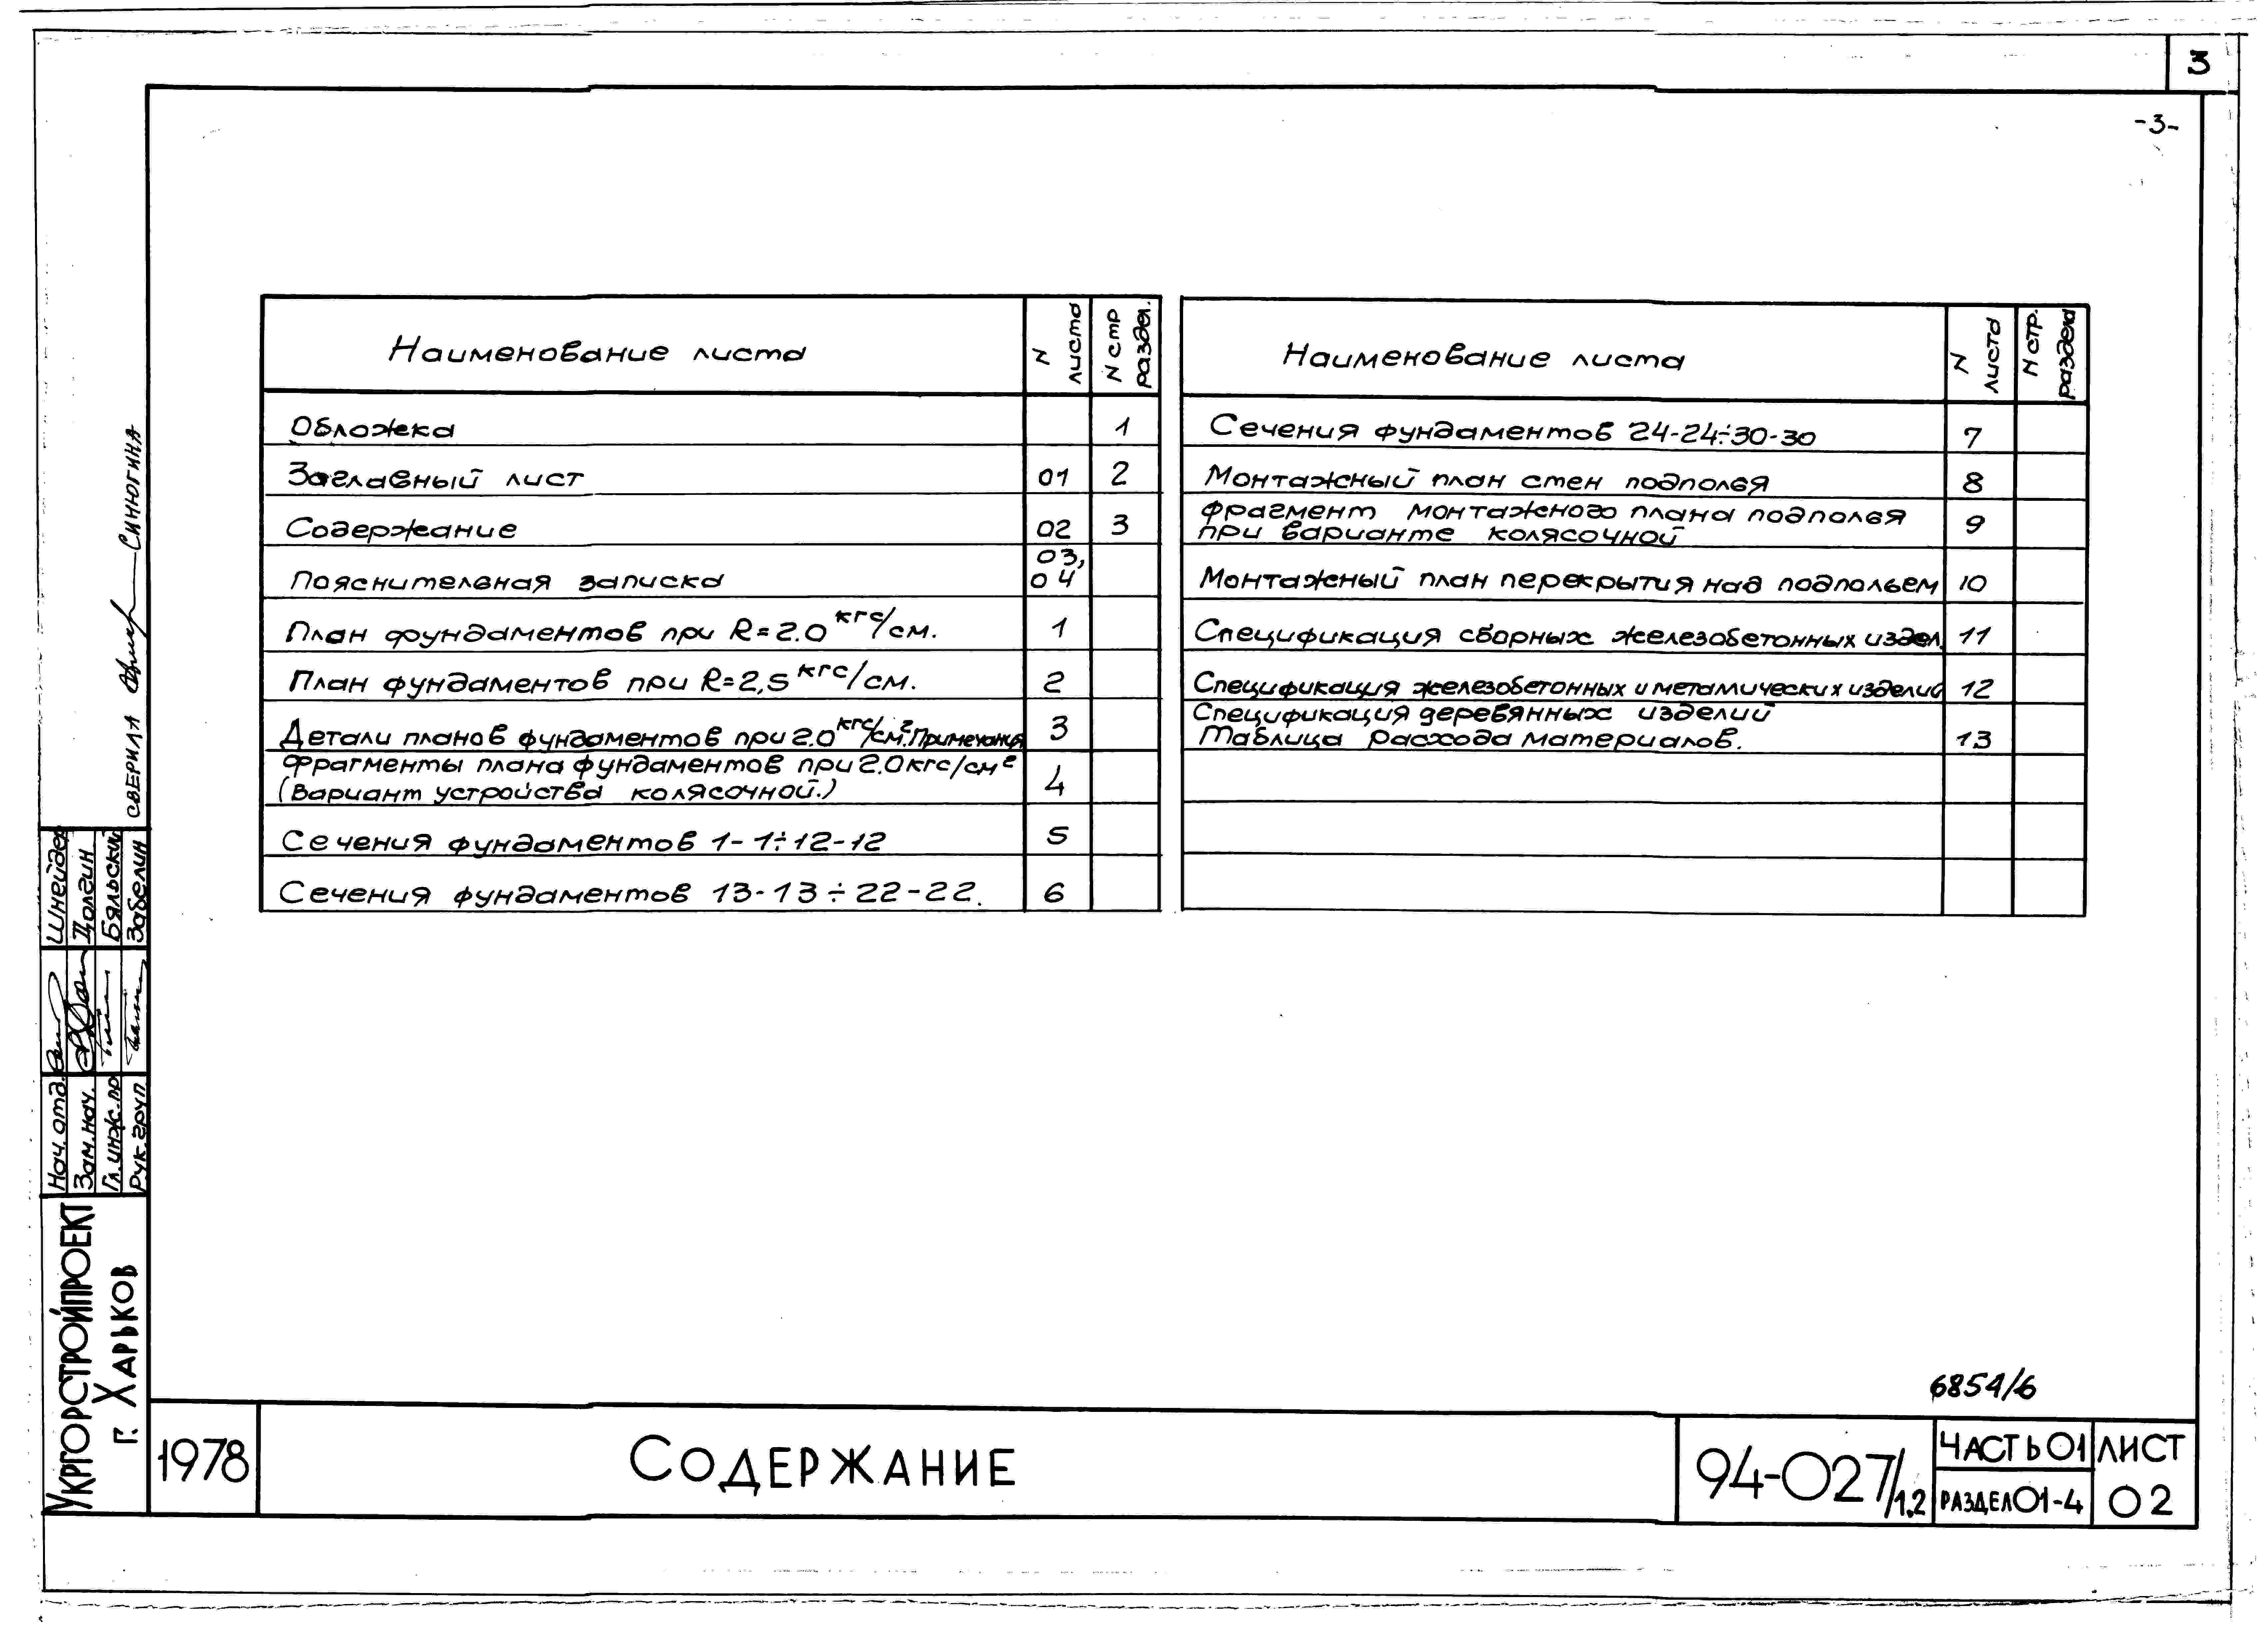 3
-3-
Наименование листа
N листа
N стр раздел.
Обложка 1
Заглавный лист 01 2
Содержание 02 3
Пояснительная записка 03, 04
План фундаментов при R=2.0 кгс/см. 1
План фундаментов при R=2,5 кгс/см. 2
Детали планов фундаментов при 2.0 кгс/см². Примечания 3
Фрагменты плана фундаментов при 2.0 кгс/см²
(вариант устройства колясочной.) 4
Сечения фундаментов 1-1÷12-12 5
Сечения фундаментов 13-13÷22-22. 6
Наименование листа
N листа
N стр. раздела
Сечения фундаментов 24-24÷30-30 7
Монтажный план стен подполья 8
Фрагмент монтажного плана подполья
при варианте колясочной 9
Монтажный план перекрытия над подпольем 10
Спецификация сборных железобетонных издел. 11
Спецификация железобетонных и металлических изделий 12
Спецификация деревянных изделий
Таблица расхода материалов. 13
Сверила Синюгина
Нач. отд. Шнейдер
Зам. нач. Цолгин
Гл. инж. пр Бяльский
Рук. груп. Забелин
Укргорстройпроект
г. Харьков
6854/6
1978
Содержание
94-027/1.2
Часть 01
Раздел 01-4
Лист
02